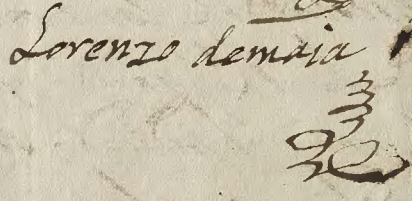 Lorenzo demaia